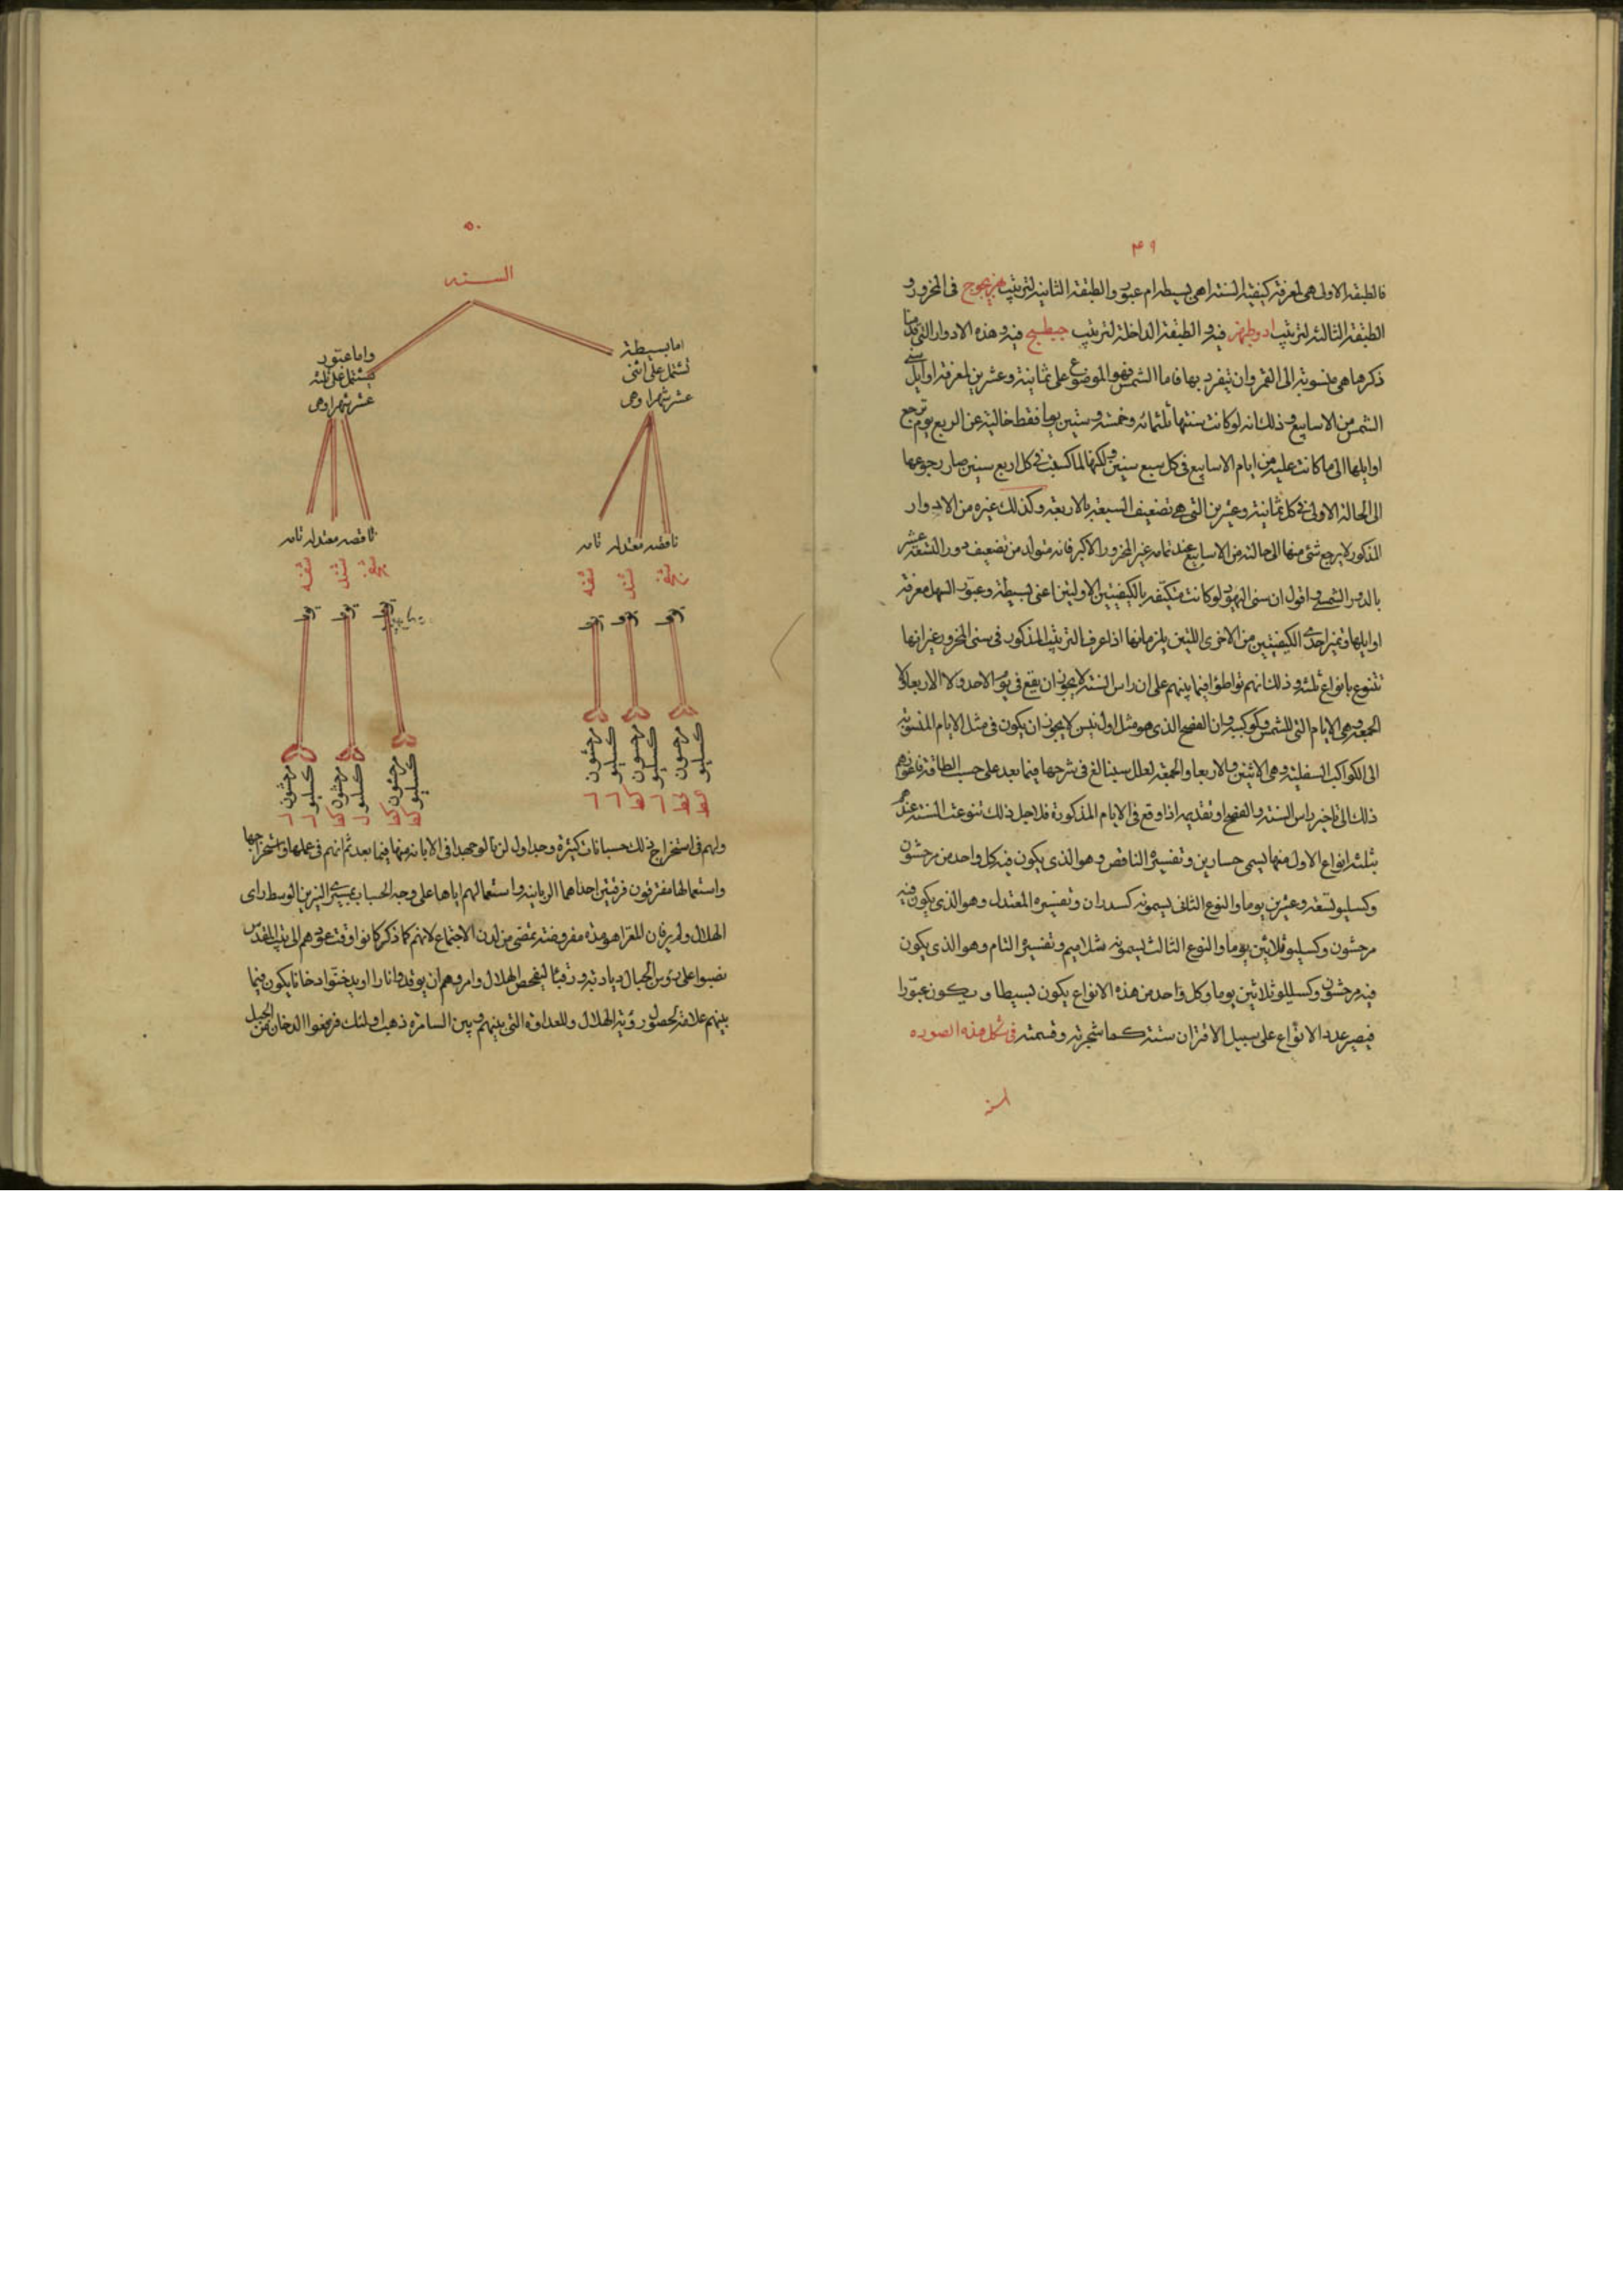 ٤٩
فالطبقة الاولى هى لمعرفة كيفية السنة اهى بسيطة ام عبور والطبقة الثانية لترتيب هزيجوج فى المحزور و
الطبقة الثالثة لترتيب ادوطبهز فيه و الطبقة الداخلة لترتيب جبطبج فيه و هذه الادوار التى قدمنا
ذكرها هى منسوبة الى القمر وان تيفرد بها فاما الشمس فهو الموضوع على ثمانية وعشرين لمعرفة اوايل سنى
الشمس من الاسابيع و ذلك انه لو كانت سنتها ثلثمائة وخمسة و ستين يوما فقط خالية عن الربع يوم ترجع
اوايلها الى ما كانت عليه من ايام الاسابيع فى كل سبع سنين ولكنها لما كبست فى كل اربع سنين صار رجوعها
الى الحالة الاولى فى كل ثمانية وعشرين التى هى تضعيف السبعة بالاربعة وكذلك غيره من الادوار
المذكور لا يرجع شئ منها الى حالته من الاسابيع عند تمامه غير المحزور الاكبر فانه متولد من تضعيف دور التسعة عشر
بالدور الشمسى و اقول ان سنى اليهود لو كانت متكيفة بالكيفيتين الاوليتين اعنى بسيطة وعبور السهل معرفة
اوايلها وتميز احدى الكيفيتين من الاخرى اللتين يلزمانها اذا عرف الترتيب المذكور فى سنى المحزور غير انها
تتنوع بانواع ثلثة و ذلك انهم تواطؤا فيما بينهم على ان راس السنة لا يجوز ان يقع فى يوم الاحد ولا الاربعا ولا
الجمعة وهى الايام التى للشمس وكوكبيه وان الفصح الذى هو مثل اول نيسن لا يجوز ان يكون فى مثل الايام المنسوبة
الى الكواكب السفلية وهى الاثنين والاربعا والجمعة لعلل سينالغ فى شرحها فيما بعد على حسب الطاقة
ذلك الى تاخير راس السنة والفصح او تقديمه اذا وقع فى الايام المذكورة فلاجل ذلك تنوعت السنة عندهم
بثلثة انواع الاول منها يسمى حسارين وتفسيره الناقص وهو الذى يكون فيه كل واحد من مرحشون
وكسليو تسعة وعشرين يوما والنوع الثانى يسمونه كسدران وتفسيره المعتدل وهو الذى يكون فيه
مرحشون وكسليو ثلاثين يوما والنوع الثالث يسمونه شلاميم وتفسيره التام وهو الذى يكون
فيه مرحشون وكسليلو ثلاثين يوما وكل واحد من هذه الانواع يكون بسيطا و يكون عبورا
فيصير عدد الانواع على سبيل الاقتران ستة كما شجرته وقسمته فى شكل هذه الصوره
السنة
٥٠
السنه
اما بسيطة
تشتمل على اثنى
عشر شهرا وهى
ناقصه معتدله تامه
شنج شند شنه
يوما يوما يوما
مرحشون كسليو مرحسون كسليو مرحشون كسليو
كط كط ل كط ل ل
واما عبور
فيشتمل على ثلثة
عشر شهرا وهى
ناقصه معتدله تامه
شفج شفد شفه
يوما يوما يوما
مرحشون كسليو مرحشون كسليو مرحشون كسليو
كط كط ل كط ل ل
ولهم فى استخراج ذلك حسبانات كثيرة وجداول لن نالو جهدا فى الابانة منها فيما بعد ثم انهم فى عملها واستخراجها
واستعمالها مفترقون فرقتين احداهما الربانية واستعمالهم اياها على وجه الحساب بمسيرى النيرين الوسط راى
الهلال ولم ير فان المغزا هو مدة مفروضة تمضى من لدن الاجتماع لانهم كما ذكر كانوا وقت عودهم الى بيت المقدس
نصبوا على رؤس الجبال ديادبة و رقبا ليفحص الهلال وامروهم ان يوقدوا نارا او يدخنوا دخانا يكون فيما
بينهم علامة لحصول رؤية الهلال وللعداوة التى بينهم وبين السامرة ذهب اولئك فرفعوا الدخان من الجبل